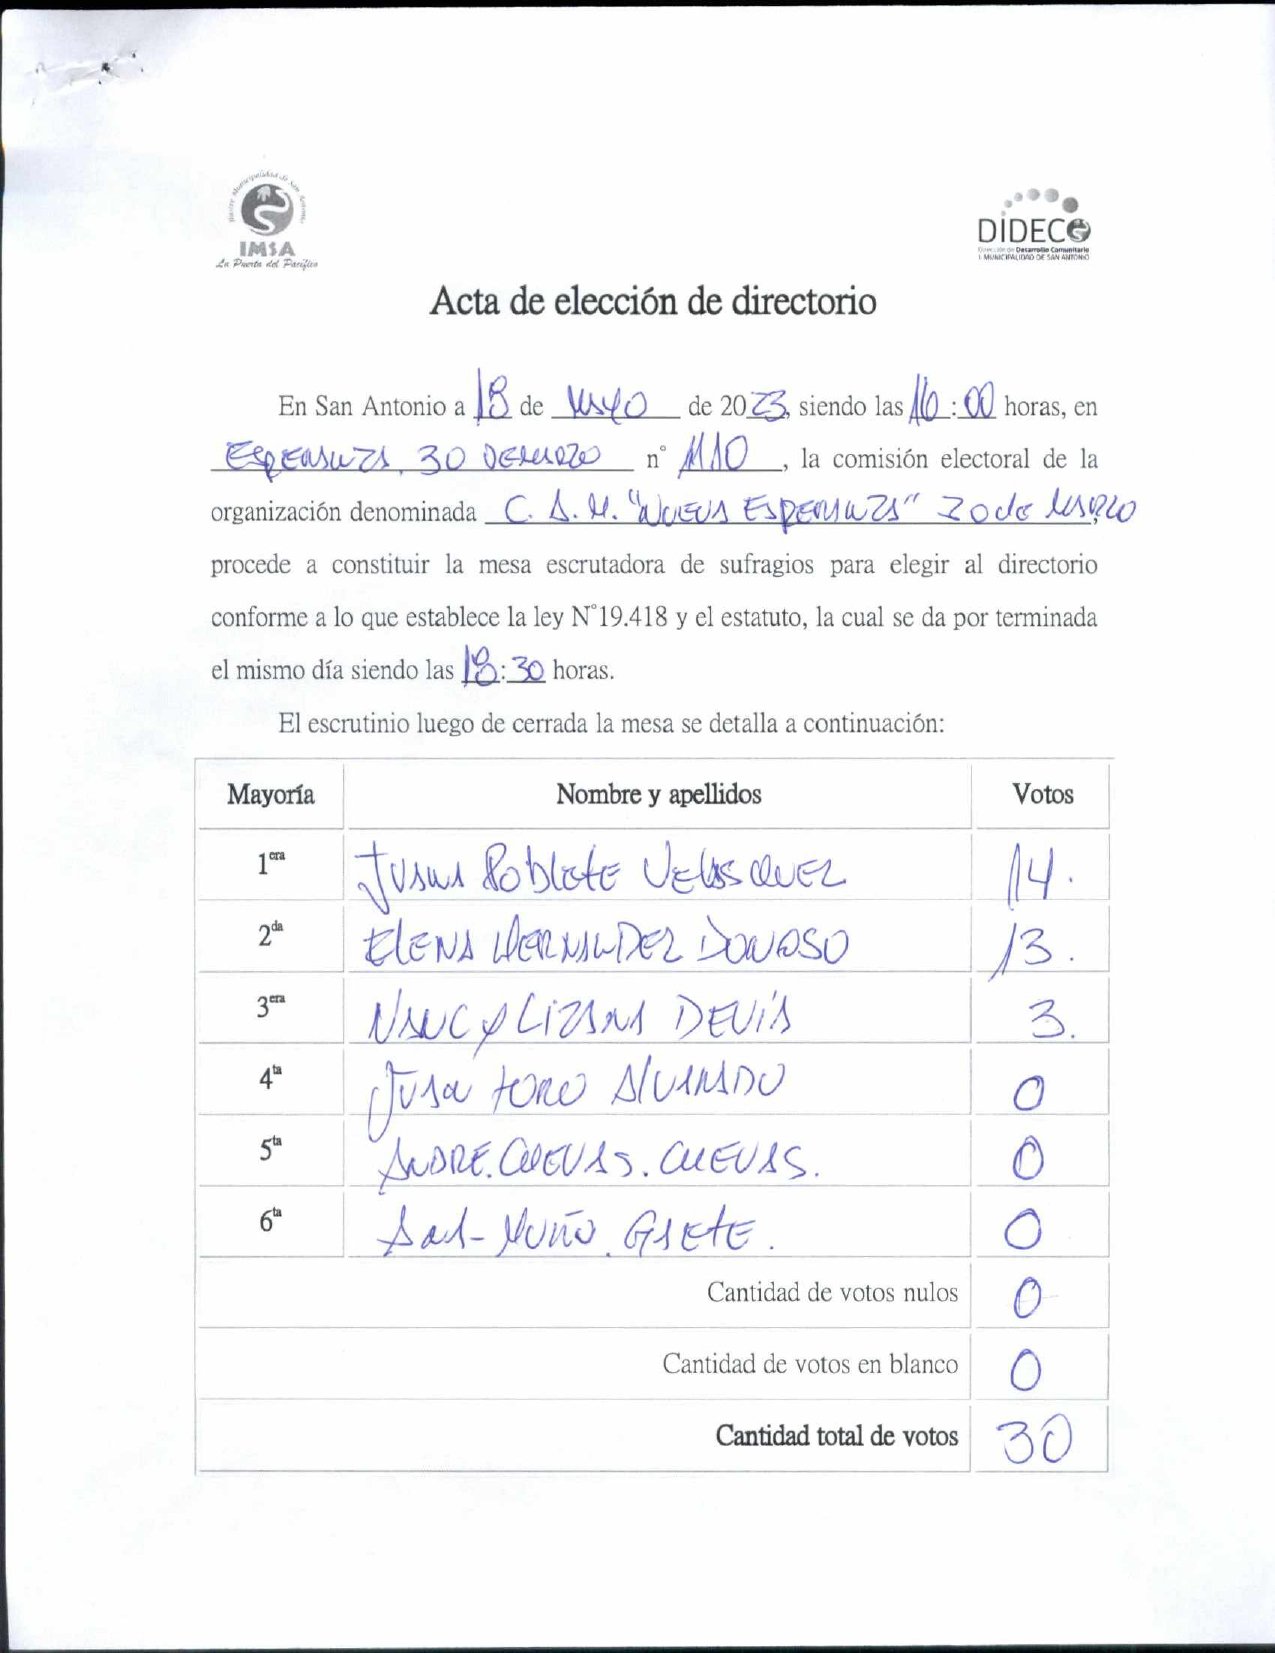 Ilustre Municipalidad de San Antonio
IMSA
La Puerta del Pacífico
DIDECO
Dirección de Desarrollo Comunitario
I. MUNICIPALIDAD DE SAN ANTONIO
Acta de elección de directorio
En San Antonio a 18 de MAYO de 2023, siendo las 16:00 horas, en
ESPERANZA 30 DE MARZO n° 1110, la comisión electoral de la
organización denominada C. A. M. "NUEVA ESPERANZA" 30 de MARZO,
procede a constituir la mesa escrutadora de sufragios para elegir al directorio
conforme a lo que establece la ley N°19.418 y el estatuto, la cual se da por terminada
el mismo día siendo las 18:30 horas.
El escrutinio luego de cerrada la mesa se detalla a continuación:
Mayoría Nombre y apellidos Votos
1era JUANA Poblete VELASQUEZ 14.
2da ELENA HERNANDEZ DONOSO 13.
3era NANCY LIZANA DEVIA 3.
4ta JUSA TORO ALVARADO 0
5ta ANDRE. CUEVAS. CUEVAS. 0
6ta MUÑO. GAETE. 0
Cantidad de votos nulos 0
Cantidad de votos en blanco 0
Cantidad total de votos 30